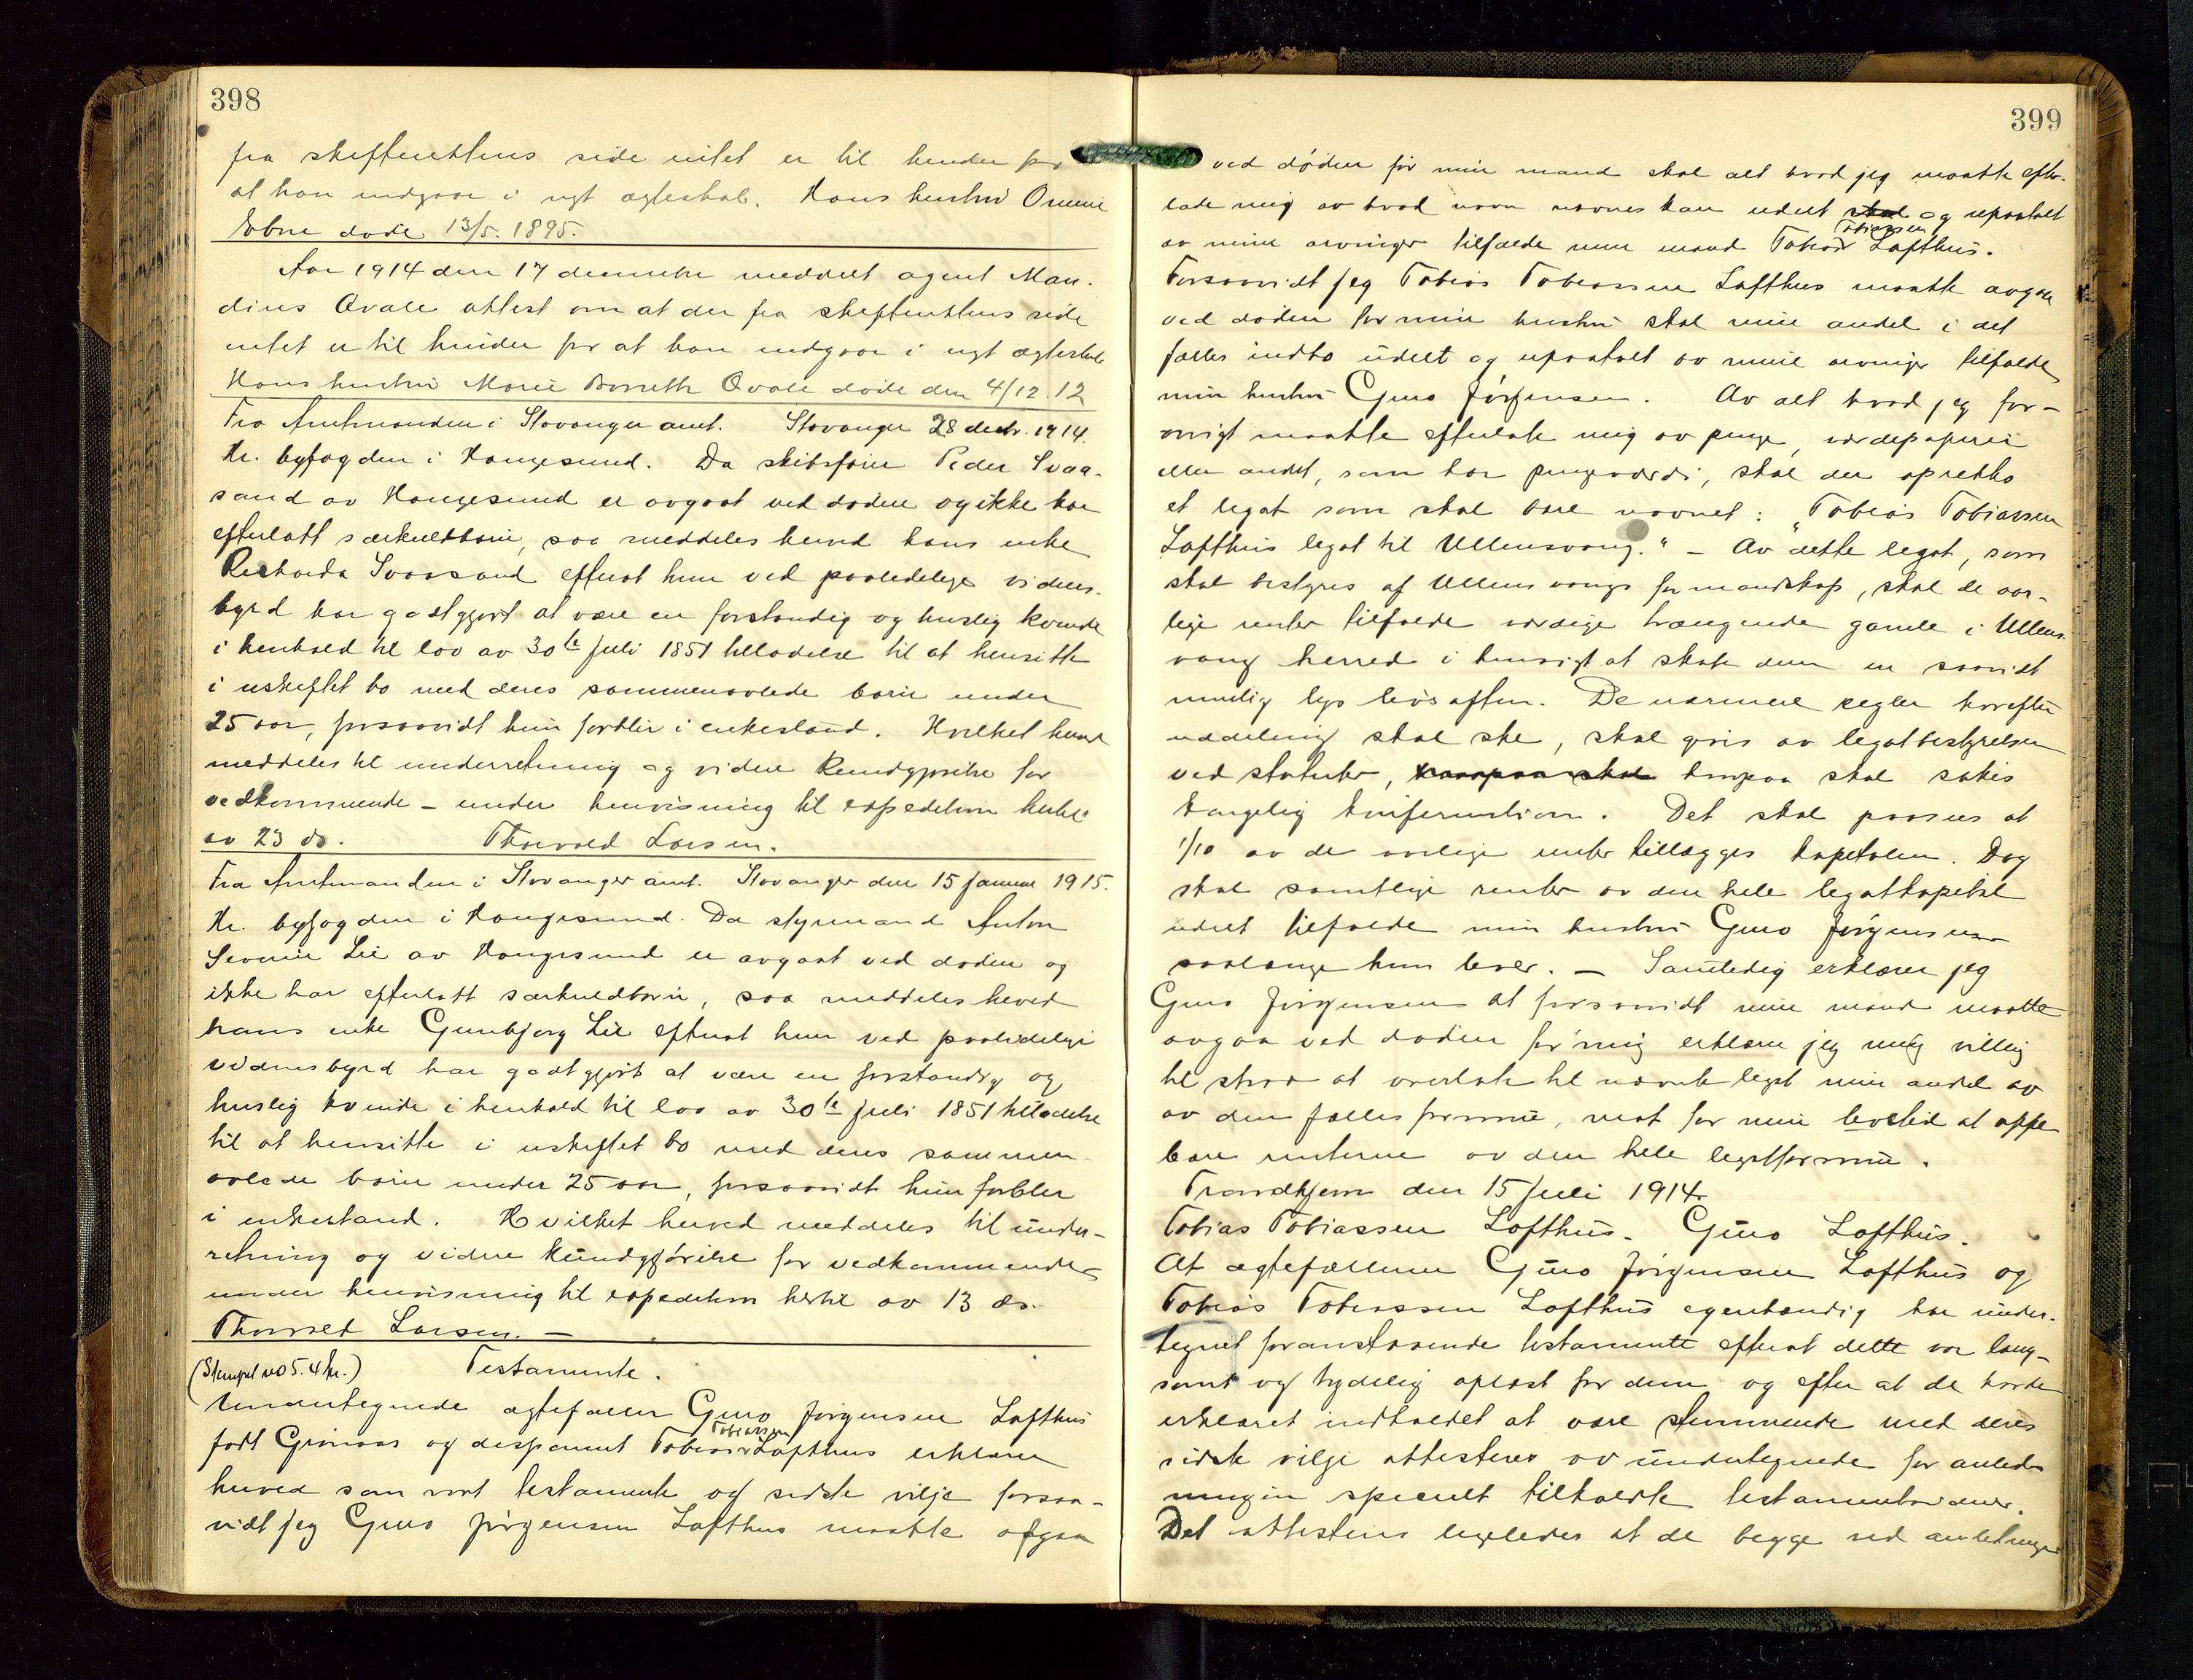 398
fra skifterettens side intet er til hinder for
at han indgaar i nyt egteskab. Hans hustru
døde 13/5. 1895.
Aar 1914 den 17 decembr meddelt agent Man-
dius Qvale attest om at der fra skifterettens side
intet er til hinder for at han indgaar i nyt egteskab
Hans hustru Marie Qvale døde den 4/12.12
Fra Amtmanden i Stavanger amt. Stavanger 28 decbr. 1914.
Hr. byfogden i Haugesund. Da skibsfører Peder Svaa-
sand av Haugesund er avgaat ved døden og ikke har
efterlatt særkuldbørn, saa meddeles herved hans enke
Rikarda Svaasand efterat hun ved paalidelige vidnes-
byrd har godtgjort at være en forstandig og huslig kvinde
i henhold til lov av 30te juli 1851 tilladelse til at hensitte
i uskiftet bo med deres sammenavlede børn under
25 aar, forsaavidt hun forblir i enkestand. Hvilket herved
meddeles til underretning og videre kundgjørelse for
vedkommende – under henvisning til expedition hertil
av 23 ds. Thorvald Larsen.
Fra Amtmanden i Stavanger amt. Stavanger den 15 januar 1915.
Hr. byfogden i Haugesund. Da styrmand Anton
Severin Lie av Haugesund er avgaat ved døden og
ikke har efterlatt særkuldbørn, saa meddeles herved
hans enke Gunbjørg Lie efterat hun ved paalidelige
vidnesbyrd har godtgjort at være en forstandig og
huslig kvinde i henhold til lov av 30te juli 1851 tilladelse
til at hensitte i uskiftet bo med deres sammen
avlede børn under 25 aar, forsaavidt hun forblir
i enkestand. Hvilket herved meddeles til under-
retning og videre kundgjørelse for vedkommende
under henvisning til expedition hertil av 13 ds.
Thorvald Larsen. –
(Stempel no 5. 4 kr.) Testamente.
Undertegnede egtefæller Guro Jørgensen Lofthus
født Grønaas og dispament Tobias Tobiassen Lofthus erklærer
herved som vort testamente og sidste vilje forsaa-
vidt jeg Guro Jørgensen Lofthus maatte afgaa
399
ved døden før min mand skal alt hvad jeg maatte efter-
late mig av hvad navn nævnes kan udelt skal og upaatalt
av mine arvinger tilfalde min mand Tobias Tobiassen Lofthus.
Forsaavidt jeg Tobias Tobiassen Lofthus maatte avgaa
ved døden før min hustru skal min andel i det
fælles indbo udelt og upaatalt av mine arvinger tilfalde
min hustru Guro Jørgensen. Av alt hvad jeg for-
øvrigt maatte efterlate mig av penge, værdipapirer
eller andet, som har pengeværdi, skal der oprettes
et legat som skal være navnet: „Tobias Tobiassen
Lofthus legat til Ullensvang." – Av dette legat, som
skal bestyres af Ullensvangs formandskap, skal de aar-
lige renter tilfalde værdige trængende gamle i Ullens-
vang herred i hensigt at skate dem en saavidt
mulig lys livsaften. De nærmere regler hvorefter
uddeling skal ske, skal gives av legatbestyrelsen
ved statuter, hvorpaa skal hvorpaa skal søkes
kongelig konfirmation. Det skal paasees at
1/10 av de aarlige renter tillægges kapitalen. Dog
skal samtlige renter av den hele legatkapital
udelt tilfalde min hustru Guro Jørgensen
saalænge hun lever. – Samtidig erklærer jeg
Guro Jørgensen at forsaavidt min mand maatte
avgaa ved døden før mig erklærer jeg mig villig
til straa at overlate til nævnte legat min andel av
av den fælles formue, mot for min levetid at oppe
bære renterne av den hele legatformue.
Trondhjem den 15 juli 1914
Tobias Tobiassen Lofthus. Guro Lofthus.
At egtefællerne Guro Jørgensen Lofthus og
Tobias Tobiassen Lofthus egenhændig har under-
tegnet foranstaaende testamente efterat dette var lang-
samt og tydelig oplæst for dem og efter at de havde
erklæret indholdet at være stemmende med deres
sidste vilje attesteres av undertegnede for anled-
ningen specielt tilkaldte testamentsvidner.
Det attesteres ligeledes at de begge ved anledningen